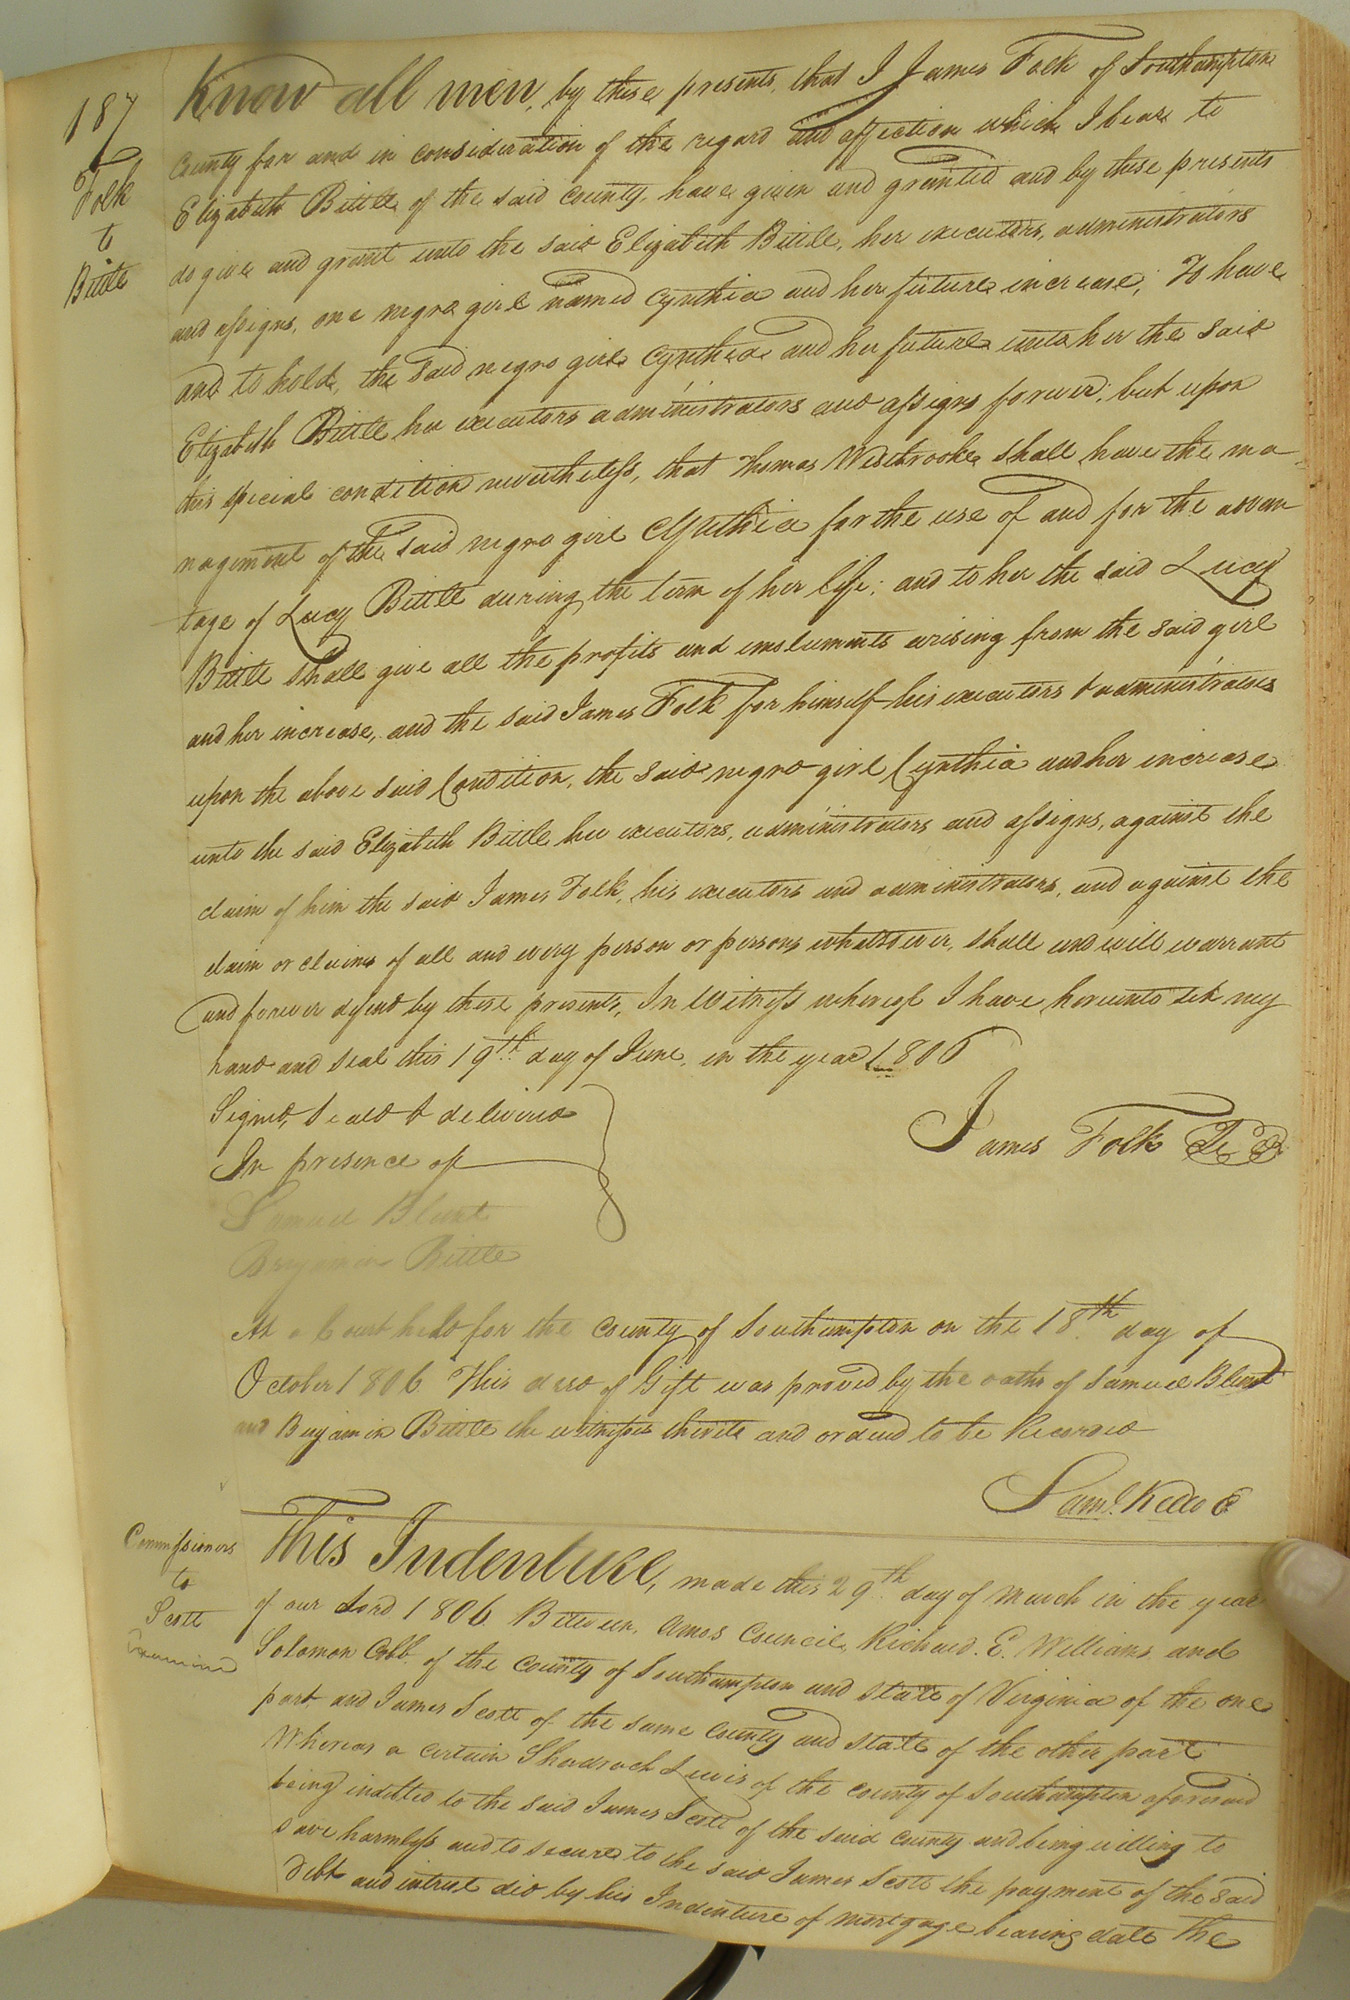 187
Folk
to
Bittle
Know all men, by these presents, that I James Folk of Southampton
County for and in consideration of the regard and affection which I bear to
Elizabeth Bittle of the said county, have given and granted and by these presents
do give and grant unto the said Elizabeth Bittle, her executors, administrators
and assigns, one negro girl named Cynthia and her future increase; To have
and to hold, the said negro girl Cynthia and her future unto her the said
Elizabeth Bittle her executors administrators and assigns forever; but upon
this special condition nevertheless, that Thomas Westbrooke shall have the ma-
nagement of the said negro girl Cynthia for the use of and for the advan
tage of Lucy Bittle during the term of her life; and to her the said Lucy
Bittle shall give all the profits and emoluments arising from the said girl
and her increase, and the said James Folk for himself his executors & administrators
upon the above said Condition, the said negro girl Cynthia and her increase
unto the said Elizabeth Bittle her executors, administrators and assigns, against the
claim of him the said James Folk, his executors and administrators, and against the
claim or claims of all and every person or persons whatsoever, shall and will warrant
and forever defend by these presents, In Witness whereof I have hereunto set my
hand and seal this 19th day of June, in the year 1806
Signed, Seald & delivered
In presence of
James Folk
Samuel Blunt
Benjamin Bittle
At a Court held for the county of Southampton on the 18th day of
October 1806 This deed of Gift was proved by the oaths of Samuel Blunt
and Benjamin Bittle the witnesses thereto and ordered to be Recorded
Saml. Kello C
Commissioners
to
Scott
Examined
This Indenture, made this 29th day of March in the year
of our Lord 1806. Between, Amos Council, Richard. E. Williams and
Solomon Cobb. of the county of Southampton and State of Virginia of the one
part and James Scott of the same county and state of the other part
Whereas a certain Shadrach Lewis of the county of Southampton aforesaid
being indebted to the said James Scott of the said county and being willing to
save harmless and to secure to the said James Scott the payment of the said
Debt and intrest did by his Indenture of mortgage bearing date the